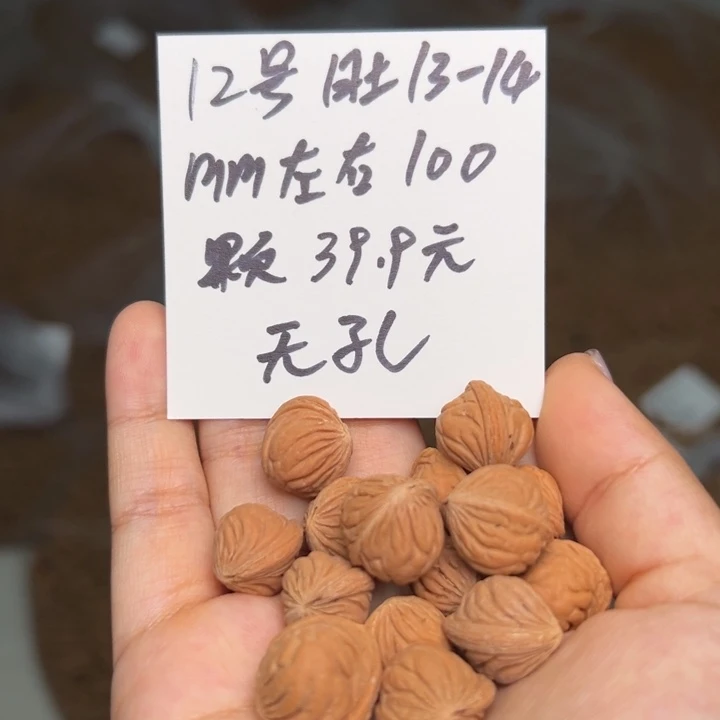 12号 肚13-14
mm左右 100
颗 39.9元
无孔